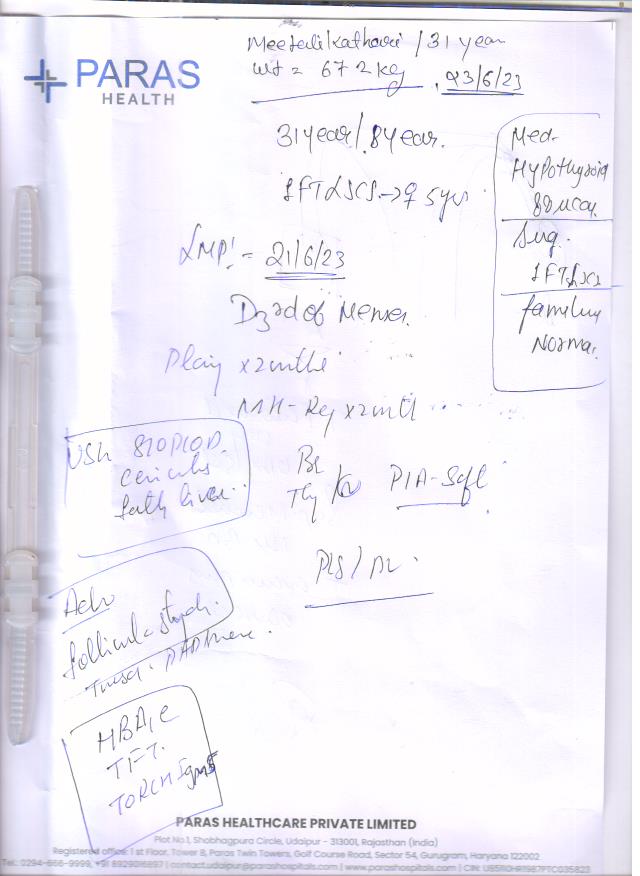 PARAS
HEALTH
Meetali Kathari / 31 year
wt = 67.2 kg
23/6/23
31 year / 8 year.
1FT LSCS → ♀ 5 yrs
LMP! = 21/6/23
D3rd of Menses.
Plaing x 2 mths
MH - Reg x 2 mth
Med-
Hypothyroid
88 mcg.
Sug.
1FTLSCS
family
Normal.
USG B/O PCOD
fatty liver
Br
Thy
P/A - Soft
P/S /
Adv
follicular study.
HBA1c
TFT.
TORCH IgM
PARAS HEALTHCARE PRIVATE LIMITED
Plot No.1, Shobhagpura Circle, Udaipur - 313001, Rajasthan (India)
Registered office: 1 st Floor, Tower B, Paras Twin Towers, Golf Course Road, Sector 54, Gurugram, Haryana 122002
Tel.: 0294-666-9999, +91 8929016897 | contact.udaipur@parashospitals.com | www.parashospitals.com | CIN: U85110HR1987PTC035823